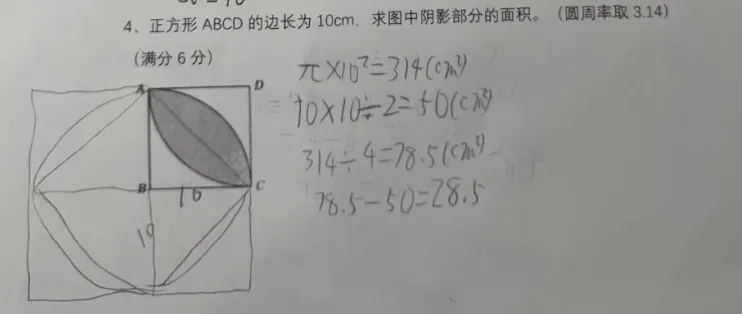 4、正方形 ABCD 的边长为 10cm，求图中阴影部分的面积。（圆周率取 3.14）
（满分 6 分）
A
D
B
C
10
10
π×10²=314(cm²)
10×10÷2=50(cm²)
314÷4=78.5(cm²)
78.5-50=28.5